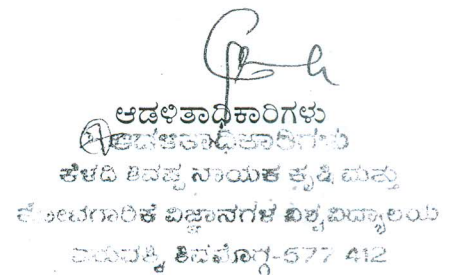 ಆಡಳಿತಾಧಿಕಾರಿಗಳು
ಆಡಳಿತಾಧಿಕಾರಿಗಳು
ಕೆಳದಿ ಶಿವಪ್ಪ ನಾಯಕ ಕೃಷಿ ಮತ್ತು
ತೋಟಗಾರಿಕೆ ವಿಜ್ಞಾನಗಳ ವಿಶ್ವವಿದ್ಯಾಲಯ
ಶಿವಮೊಗ್ಗ-577 412